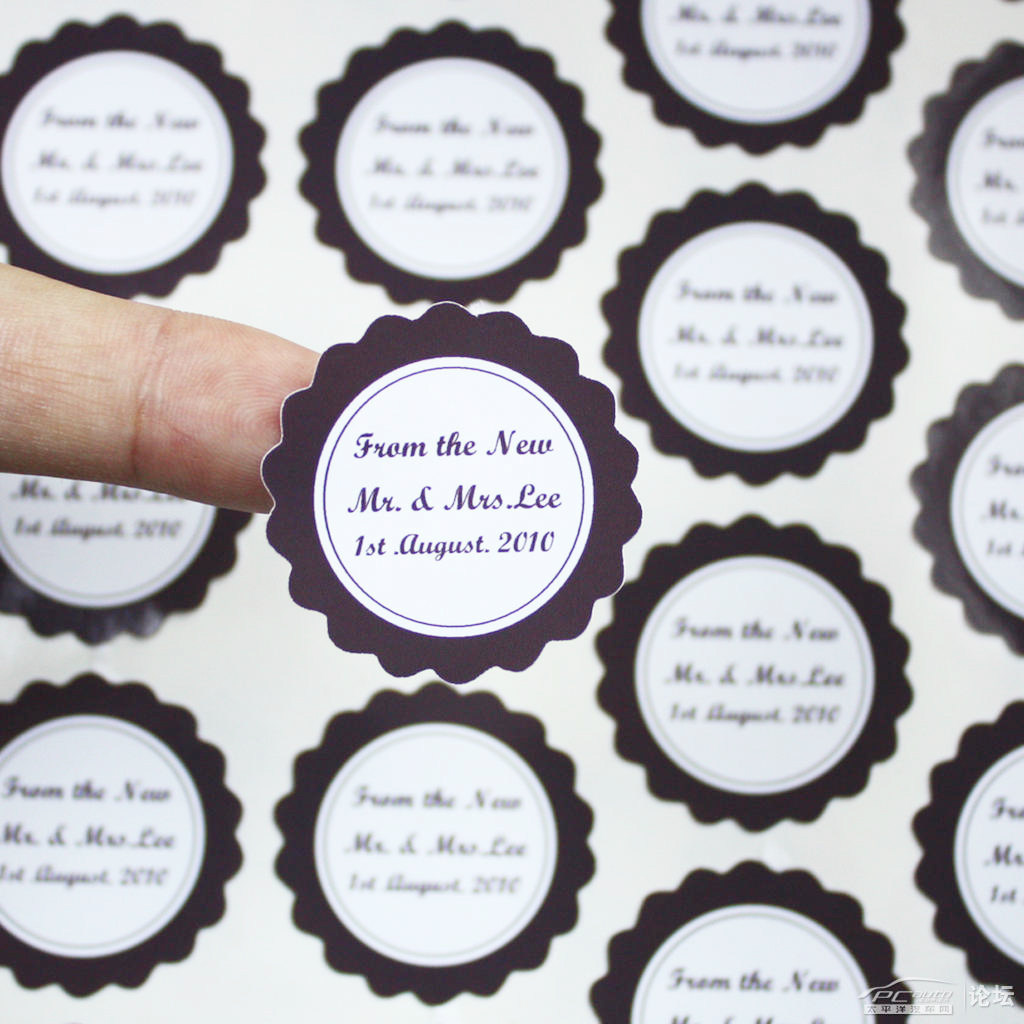 & Mrs.Lee
1st August. 2010
From the New
Mr. & Mrs.Lee
1st August. 2010
From the New
Mr. & Mrs.Lee
1st August. 2010
From the
Mr.
1st
From the New
Mr. & Mrs.Lee
1st August. 2010
From the New
Mr. & Mrs.Lee
1st .August. 2010
Mr. & Mrs.Lee
1st August. 2010
Mr.
1st
From the New
Mr. & Mrs.Lee
1st August. 2010
From the New
Mr. & Mrs.Lee
1st August. 2010
From the New
Mr. & Mrs.Lee
1st August. 2010
Mr.
1st
From the New
PCauto 论坛
太平洋汽车网